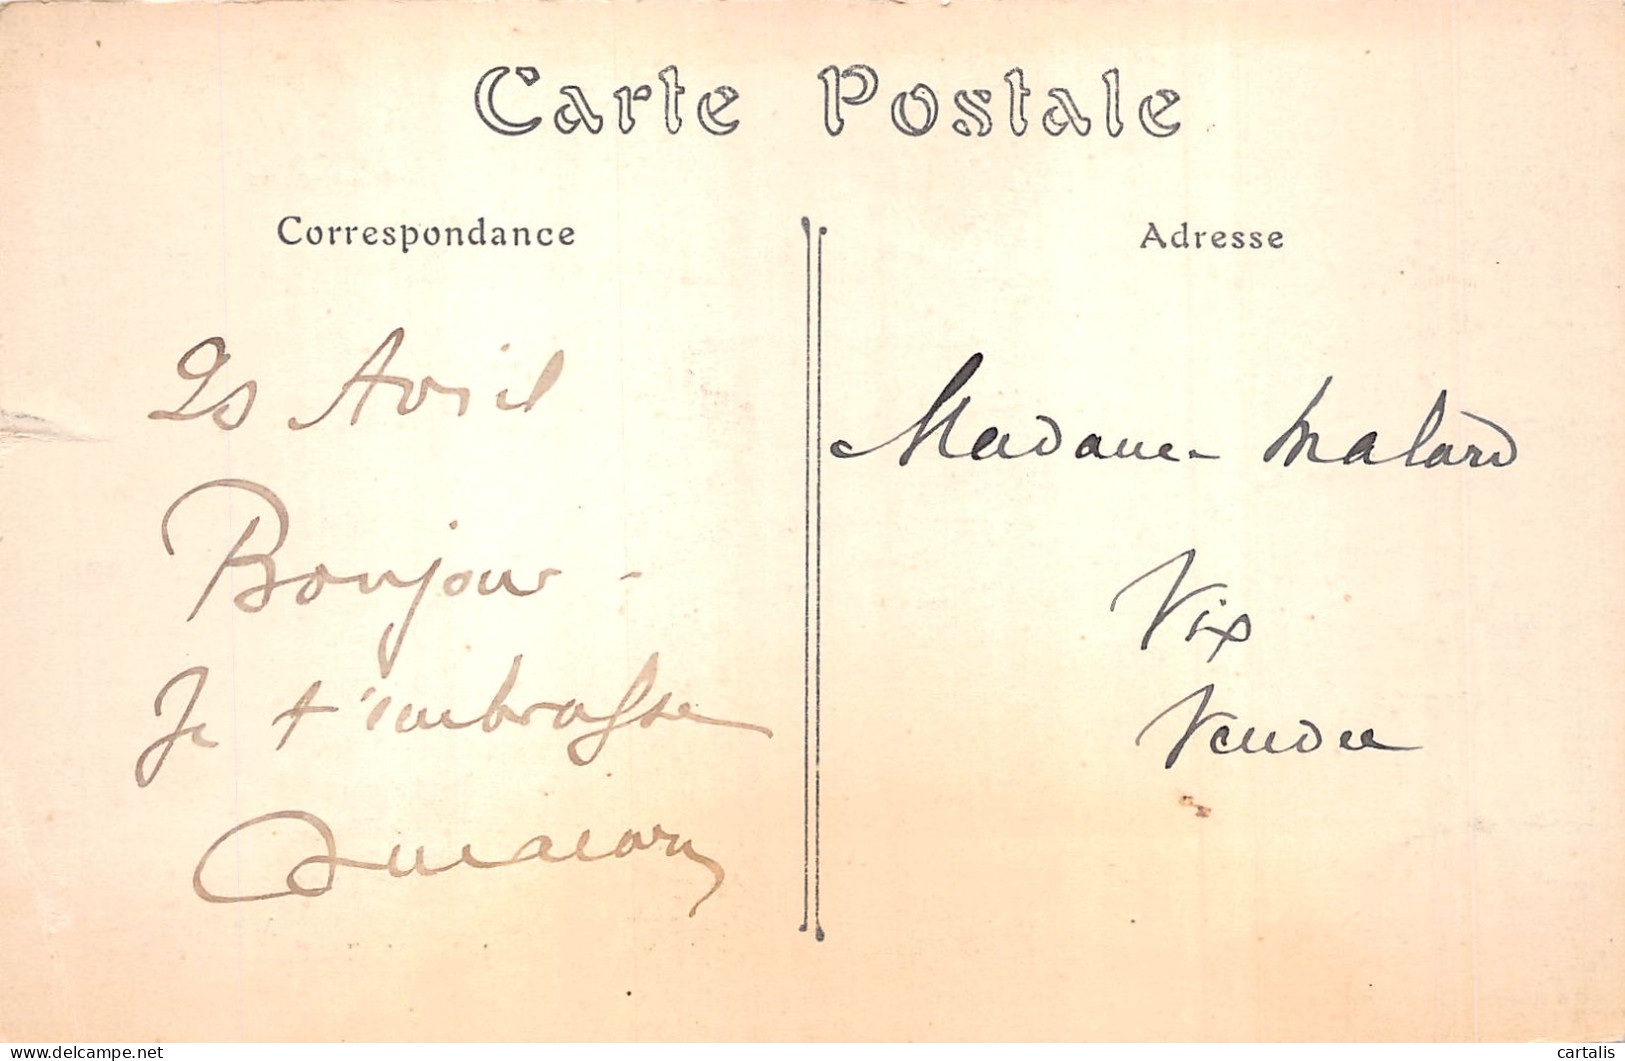 Carte Postale
Correspondance
Avril
Bonjour -
Je t'embrasse
Adresse
Madame Malard
Vix
Vendee
www.delcampe.net
cartalis